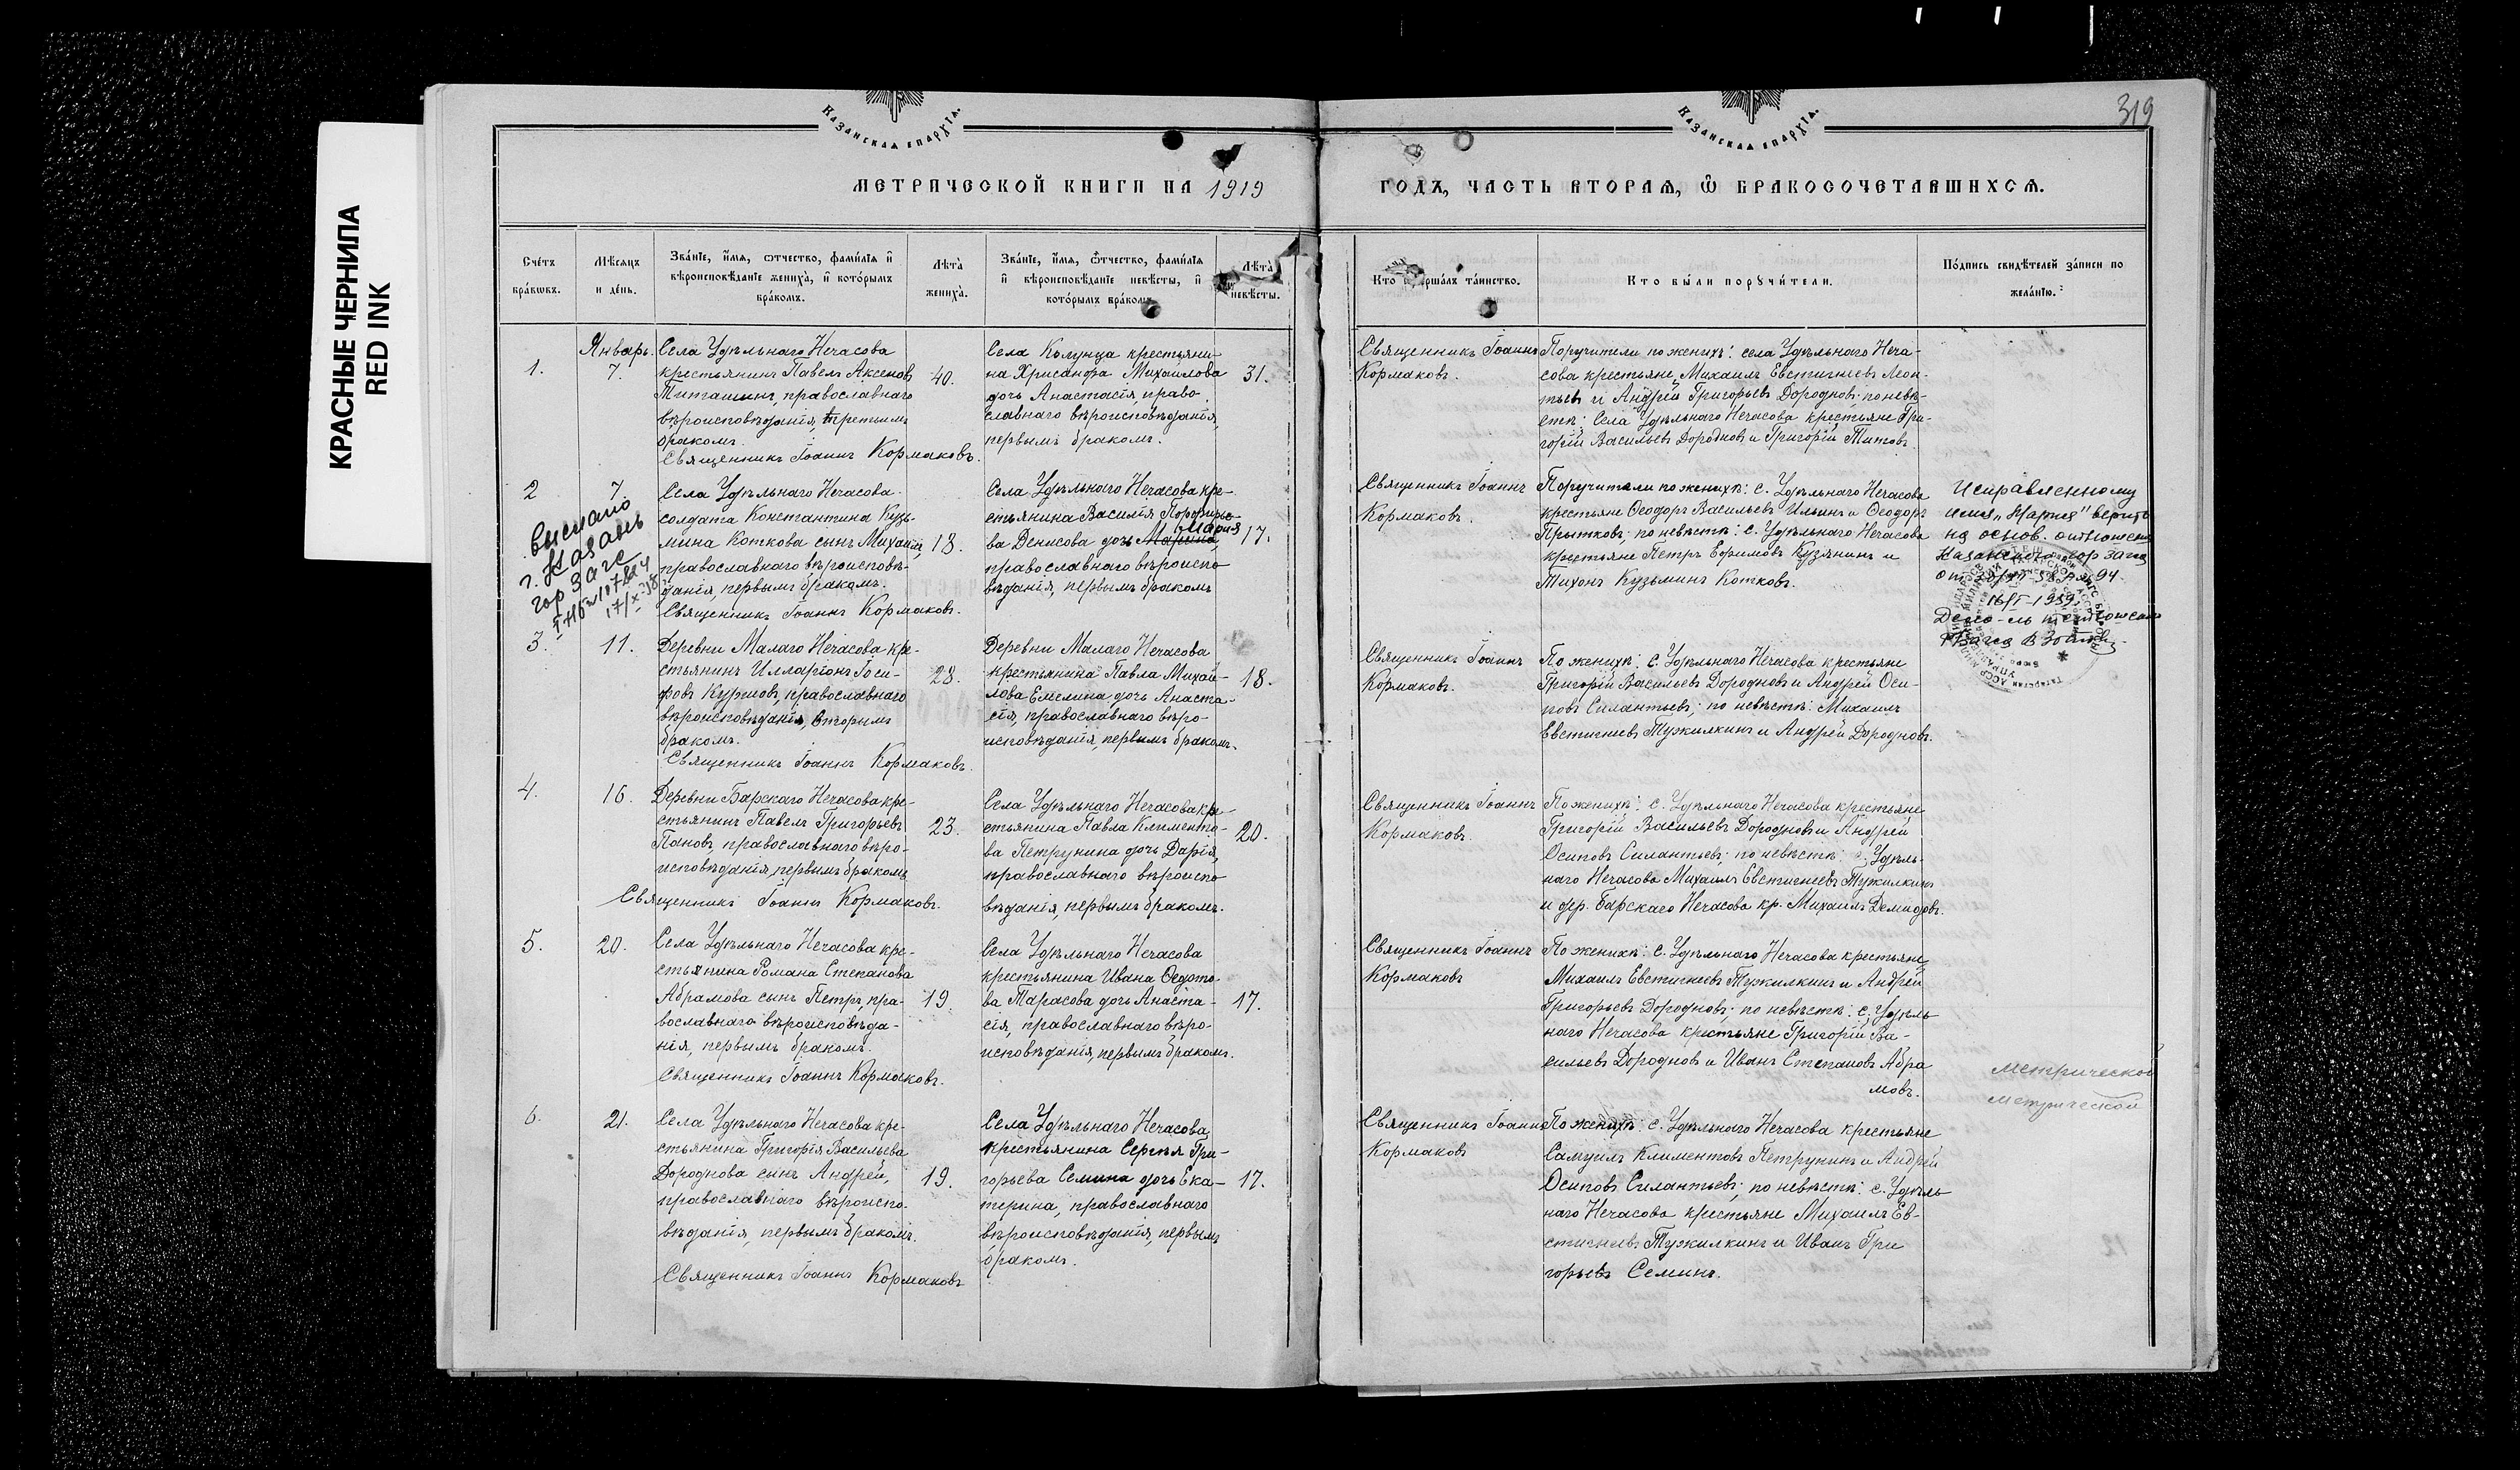 КРАСНЫЕ ЧЕРНИЛА
RED INK
319
Казанская епархїа.
Казанская епархїа.
МЕТРИЧЕСКОЙ КНИГИ НА 1919
ГОДЪ, ЧАСТЬ ВТОРАЯ, Ѡ БРАКОСОЧЕТАВШИХСЯ.
Счетъ браковъ.
Мѣсяцъ и день.
Званїе, имя, отчество, фамилїя и вѣроисповѣданїе жениха, и которымъ бракомъ.
Лѣта жениха.
Званїе, имя, отчество, фамилїя и вѣроисповѣданїе невѣсты, и которымъ бракомъ.
Лѣта невѣсты.
Кто совершалъ таинство.
Кто были поручители.
Подпись свидѣтелей записи по желанїю.
Январь.
1.
7.
Села Удѣльнаго Нечасова
крестьянинъ Павелъ Аксеновъ
Титашинъ, православнаго
вѣроисповѣданія, третьимъ
бракомъ.
Священникъ Іоаннъ Кормаковъ.
40.
Села Колунца крестьяни-
на Хрисанфа Михайлова
дочь Анастасія, право-
славнаго вѣроисповѣданія,
первымъ бракомъ.
31.
Священникъ Іоаннъ
Кормаковъ.
Поручители по женихѣ: села Удѣльнаго Неча-
сова крестьяне Михаилъ Евстигнеевъ Леон-
тьевъ и Андрей Григорьевъ Дородновъ; по невѣ-
стѣ: Села Удѣльнаго Нечасова крестьяне Гри-
горій Васильевъ Дородновъ и Григорій Титовъ.
2
7.
выслано
г. Казань
гор Загс
17/X-38
Села Удѣльнаго Нечасова
солдата Константина Кузь-
мина Коткова сынъ Михаилъ,
православнаго вѣроисповѣ-
данія, первымъ бракомъ.
Священникъ Іоаннъ Кормаковъ.
18.
Села Удѣльнаго Нечасова кре-
стьянина Василія Порфирье-
Мария
ва Денисова дочь Марина,
православнаго вѣроиспо
вѣданія, первымъ бракомъ
17.
Священникъ Іоаннъ
Кормаковъ.
Поручители по женихѣ: с. Удѣльнаго Нечасова
крестьяне Ѳеодоръ Васильевъ Ильинъ и Ѳеодоръ
Прытковъ; по невѣстѣ: с. Удѣльнаго Нечасова
крестьяне Петръ Ефимовъ Кузянинъ и
Тихонъ Кузьминъ Котковъ.
Исправленному
имя "Мария" верить
на основ. отношения
Казанского гор Загса
16/I-1939
3.
11.
Деревни Малаго Нечасова кре-
стьянинъ Илларіонъ Іоси-
фовъ Куршовъ, православнаго
вѣроисповѣданія, вторымъ
бракомъ.
Священникъ Іоаннъ Кормаковъ.
28.
Деревни Малаго Нечасова
крестьянина Павла Михай-
лова Емелина дочь Анаста-
сія, православнаго вѣро-
исповѣданія, первымъ бракомъ.
18.
Священникъ Іоаннъ
Кормаковъ.
По женихѣ: с. Удѣльнаго Нечасова крестьяне
Григорій Васильевъ Дородновъ и Андрей Оси-
повъ Силантьевъ; по невѣстѣ: Михаилъ
Евстигнеевъ Тужилкинъ и Андрей Дородновъ.
4.
16.
Деревни Барскаго Нечасова кре-
стьянинъ Павелъ Григорьевъ
Пановъ, православнаго вѣро-
исповѣданія, первымъ бракомъ
Священникъ Іоаннъ Кормаковъ.
23.
Села Удѣльнаго Нечасова кре-
стьянина Павла Климента-
ва Петрунина дочь Дарія,
православнаго вѣроиспо
вѣданія, первымъ бракомъ.
20.
Священникъ Іоаннъ
Кормаковъ.
По женихѣ: с. Удѣльнаго Нечасова крестьяне
Григорій Васильевъ Дородновъ и Андрей
Осиповъ Силантьевъ; по невѣстѣ: с. Удѣль-
наго Нечасова Михаилъ Евстигнеевъ Тужилкинъ
и дер. Барскаго Нечасова кр. Михаилъ Демидовъ.
5.
20.
Села Удѣльнаго Нечасова кре-
стьянина Романа Степанова
Абрамова сынъ Петръ, пра-
вославнаго вѣроисповѣда-
нія, первымъ бракомъ.
Священникъ Іоаннъ Кормаковъ.
19.
Села Удѣльнаго Нечасова
крестьянина Ивана Ѳедото-
ва Тарасова дочь Анаста-
сія, православнаго вѣро-
исповѣданія, первымъ бракомъ.
17.
Священникъ Іоаннъ
Кормаковъ
По женихѣ: с. Удѣльнаго Нечасова крестьяне
Михаилъ Евстигнеевъ Тужилкинъ и Андрей
Григорьевъ Дородновъ; по невѣстѣ: с. Удѣль
наго Нечасова крестьяне Григорій Ва-
сильевъ Дородновъ и Иванъ Степановъ Абра
мовъ.
метрической
метрической
6.
21.
Села Удѣльнаго Нечасова кре-
стьянина Григорія Васильева
Дороднова сынъ Андрей,
православнаго вѣроиспо-
вѣданія, первымъ бракомъ.
Священникъ Іоаннъ Кормаковъ
19.
Села Удѣльнаго Нечасова
крестьянина Сергѣя Гри-
горьева Семина дочь Ека-
терина, православнаго
вѣроисповѣданія, первымъ
бракомъ.
17.
Священникъ Іоаннъ
Кормаковъ
По женихѣ: с. Удѣльнаго Нечасова крестьяне
Самуилъ Климентовъ Петрунинъ и Андрей
Осиповъ Силантьевъ; по невѣстѣ: с. Удѣль
наго Нечасова крестьяне Михаилъ Ев-
стигнеевъ Тужилкинъ и Иванъ Гри
горьевъ Семинъ.